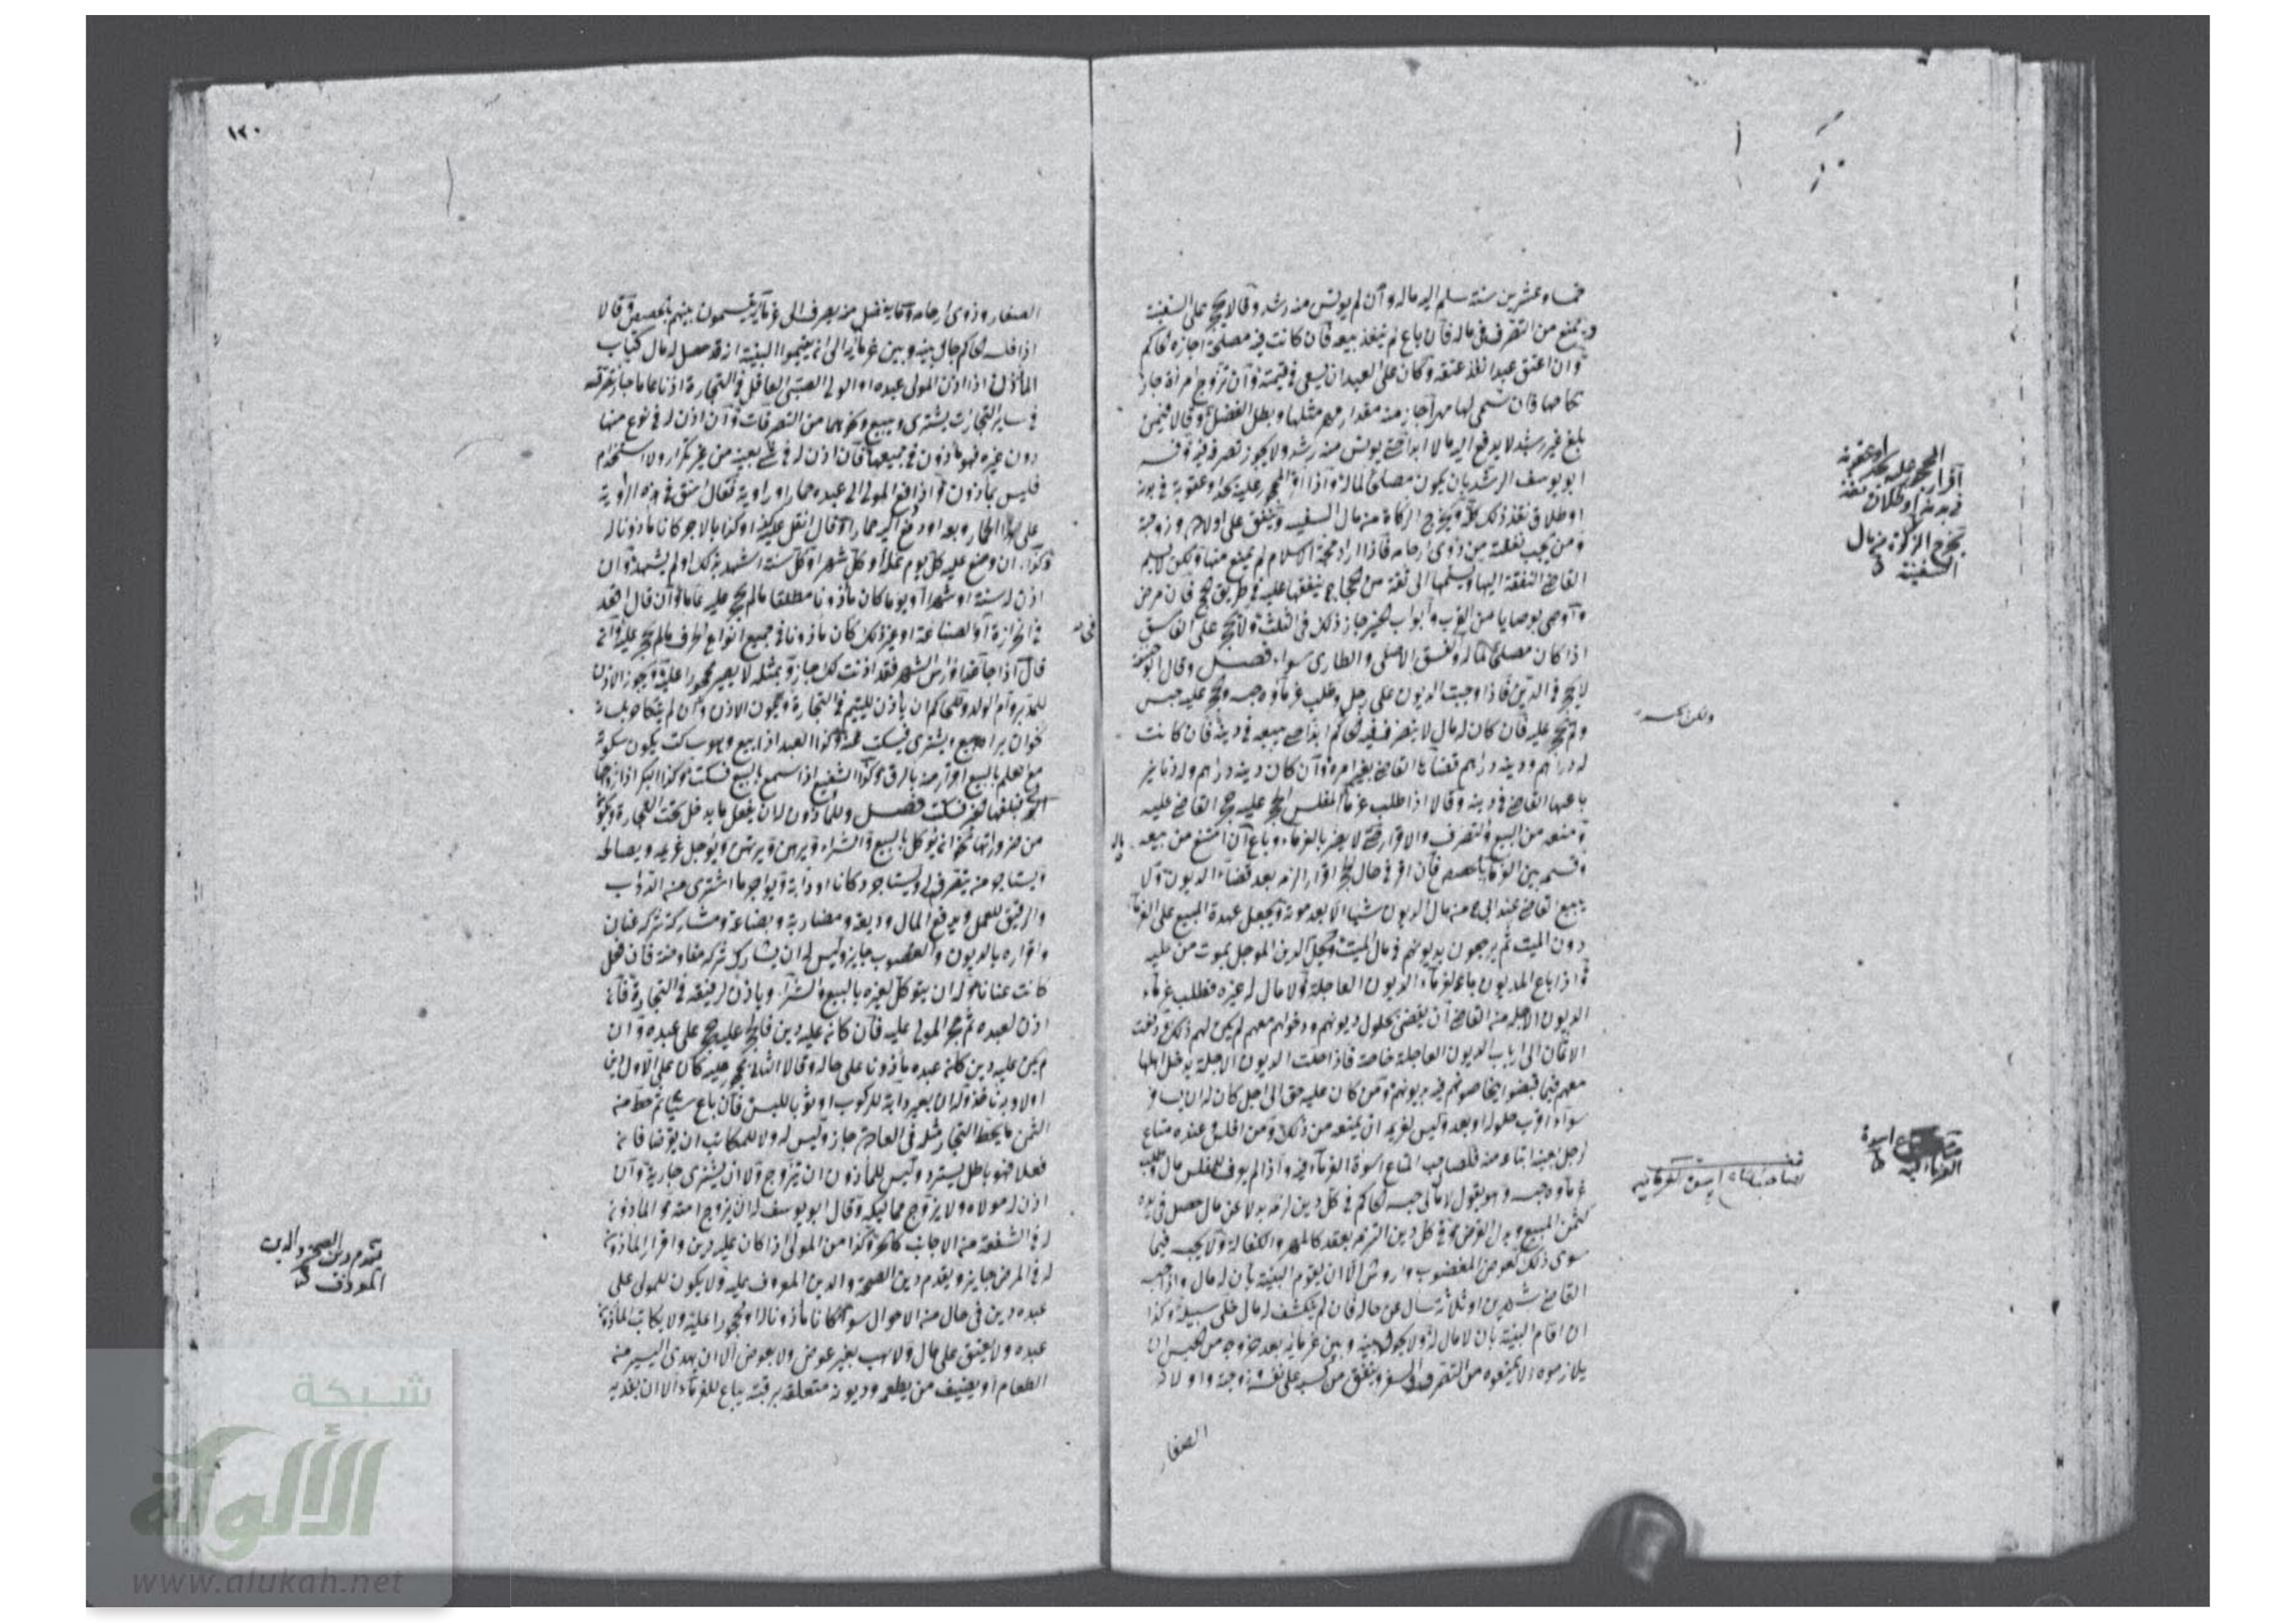 خمسا وعشرين سنة سلم اليه ماله وان لم يونس منه رشد وقالا يحجر على السفيه
ويمنع من التصرف في ماله فان باع لم ينفذ بيعه فان كانت فيه مصلحة اجازه الحاكم
وان اعتق عبدا نفذ عتقه وكان على العبد ان يسعى في قيمته وان تزوج امرأة جاز
نكاحها فان سمى لها مهرا جاز منه مقدار مهر مثلها وبطل الفضل وقالا فيمن
بلغ غير رشيد لا يدفع اليه ماله ابدا حتى يونس منه رشد ولا يجوز تصرفه فيه وفسر
ابو يوسف الرشد بان يكون مصلحا لماله واذا اقر المحجور عليه بحد او عقوبة في بدنه
او طلاق نفذ ذلك كله ويخرج الزكاة من مال السفيه وينفق على اولاده وزوجته
ومن يجب نفقته من ذوى ارحامه فاذا اراد حجة الاسلام لم يمنع منها ولكن لا يسلم
القاضي النفقة اليه ويسلمها الى ثقة من الحجاج ينفقها عليه في طريق الحج فان مرض
واوصى بوصايا من القرب وابواب الخير جاز ذلك في الثلث ولا يحجر على الفاسق
اذا كان مصلحا لماله والفسق الاصلي والطارى سواء فصل وقال ابو حنيفة
لا يحجر في الدين فاذا وجبت الديون على رجل وطلب غرماؤه حبسه والحجر عليه حبس
ولم يحجر عليه فان كان له مال لا يتصرف فيه الحاكم ابدا حتى يبيعه في دينه فان كانت
له دراهم ودينه دراهم قضاها القاضي بغير امره وان كان دينه دراهم وله دنانير
باعها القاضي في دينه وقالا اذا طلب غرماء المفلس الحجر عليه حجر القاضي عليه
ومنعه من البيع والتصرف والاقرار حتى لا يضر بالغرماء وباع ان امتنع من بيعه
وقسم بين الغرماء بالحصص فان اقر في حال الحجر اقرارا لزمه بعد قضاء الديون ولا
يبيع القاضي عند ابي ح من مال المديون شيئا الا بعد موته ويجعل عهدة المبيع على الغرماء
دون الميت ثم يرجعون بديونهم في مال الميت ويحل الدين الموجل بموت من عليه
واذا باع المديون باع لغرماء الديون العاجلة ولا مال له غيره فطلب غرماء
الديون الآجلة من القاضي ان يقضى بحلول ديونهم ودخولهم معهم لم يكن لهم ذلك ودفعت
الاثمان الى ارباب الديون العاجلة خاصة فاذا حلت الديون الآجلة يدخل اهلها
معهم فيما قبضوا يخاصمونهم فيه بديونهم ومن كان عليه حق الى اجل كان له ان يسافر
سواء قرب حلوله او بعد وليس لغريمه ان يمنعه من ذلك ومن افلس وعنده متاع
لرجل بعينه ابتاعه منه فصاحب المتاع اسوة الغرماء فيه واذا لم يعرف للمفلس مال وطلب
غرماؤه حبسه وهو يقول لا مال لى حبسه الحاكم في كل دين لزمه بدلا عن مال حصل في يده
كثمن المبيع وبدل القرض وفي كل دين التزمه بعقد كالمهر والكفالة ولا يحبسه فيما
سوى ذلك كعوض المغصوب وارش الا ان يقوم البينة بان له مال واذا حبسه
القاضي شهرين او ثلاثة سأل عن حاله فان لم يكشف له مال خلى سبيله وكذا
ان اقام البينة بان لا مال له ولا يحول بينه وبين غرمائه بعد خروجه من الحبس ان
يلازموه ولا يمنعوه من التصرف والسفر وينفق من كسبه على نفسه وزوجته واولاده
الصغار
اقرار المحجور عليه بحد او عقوبة
في بدنه او طلاق نفذ
يخرج الزكوة من مال
السفيه
صاحب المتاع اسوة
الغرماء فيه
١٢٠
الصغار وذوى ارحامه وما يفضل منه يصرف الى غرمائه يقسمون بينهم بالحصص وقالا
اذا فلسه الحاكم حال بينه وبين غرمائه الى ان يقيموا البينة انه قد حصل له مال كتاب
المأذون اذا اذن المولى عبده او الولى الصبي العاقل في التجارة اذنا عاما جاز تصرفه
في ساير التجارات يشترى ويبيع ونحوهما من التصرفات وان اذن له في نوع منها
دون غيره فهو مأذون في جميعها فان اذن له في شئ بعينه من غير تكرار ولا استخدام
فليس بمأذون واذا دفع المولى الى عبده حمارا وراوية فقال استق في هذه الراوية
على هذا الحمار وبعه او دفع اليه حمارا وقال انقل عليه كذا وكذا بالاجر كان مأذونا له
وكذا ان وضع عليه كل يوم غلة او كل شهر او كل سنة اشهد بذلك او لم يشهد وان
اذن له سنة او شهرا او يوما كان مأذونا مطلقا ما لم يحجر عليه عاما وان قال اقعد
في الخرازة او الصناعة او غير ذلك كان مأذونا في جميع انواع الحرف ما لم يحجر عليه وان
قال اذا جاء غد او رأس الشهر فقد اذنت لك جاز وبمثله لا يصير محجورا عليه ويجوز الاذن
للمدبر وام الولد وللحاكم ان يأذن لليتيم في التجارة ويكون الاذن وان لم يتكلم به
نحو ان يراه يبيع ويشترى فيسكت عنه وكذا العبد اذا بيع وهو ساكت يكون سكوته
مع العلم بالبيع اقرار منه بالرق وكذا الشفيع اذا سمع بالبيع فسكت وكذا البكر اذا زوجها
الولى فبلغها الخبر فسكت فصل وللمأذون له ان يفعل ما يدخل تحت التجارة ويكون
من ضروراتها نحو ان يوكل بالبيع والشراء ويرهن ويرتهن ويؤجل غريمه ويصالحه
ويستأجر من يتصرف له ويستأجر دكانا او دابة ويؤاجر ما اشترى من الدواب
والرقيق للعمل ويدفع المال وديعة ومضاربة وبضاعة ومشاركة شركة عنان
واقراره بالديون والغصوب جايز وليس له ان يشارك شركة مفاوضة فان فعل
كانت عنانا وله ان يتوكل لغيره بالبيع والشراء وياذن لرقيقه في التجارة فان
اذن لعبده ثم حجر المولى عليه فان كان عليه دين فالحجر عليه حجر على عبده وان
لم يكن عليه دين كان عبده مأذونا على حاله وقالا الثاني محجور عليه كان على الاول دين
اولا وبه ناخذ وله ان يعير دابة للركوب او ثوبا للبس فان باع شيئا ثم حط من
الثمن ما يحط التجار مثله في العادة جاز وليس له ولا للمكاتب ان يقرضا فان
فعلا فهو باطل يسترد وليس للمأذون ان يتزوج ولا ان يشترى جارية وان
اذن له مولاه ولا يزوج مماليكه وقال ابو يوسف له ان يزوج امته وللمأذون
له في الشفعة من الاجانب كالحر وكذا من المولى اذا كان عليه دين واقرار المأذون
له في المرض جايز ويقدم دين الصحة والدين المعروف عليه ولا يكون للمولى على
عبده دين في حال من الاحوال سواء كان مأذونا له او محجورا عليه ولا يكاتب المأذون
عبده ولا يعتق على مال ولا يهب بغير عوض ولا بعوض الا ان يهدى اليسير من
الطعام او يضيف من يطعمه وديونه متعلقة برقبته يباع للغرماء الا ان يفديه
يقدم دين الصحة والدين
المعروف
شبكة
الألوكة
www.alukah.net